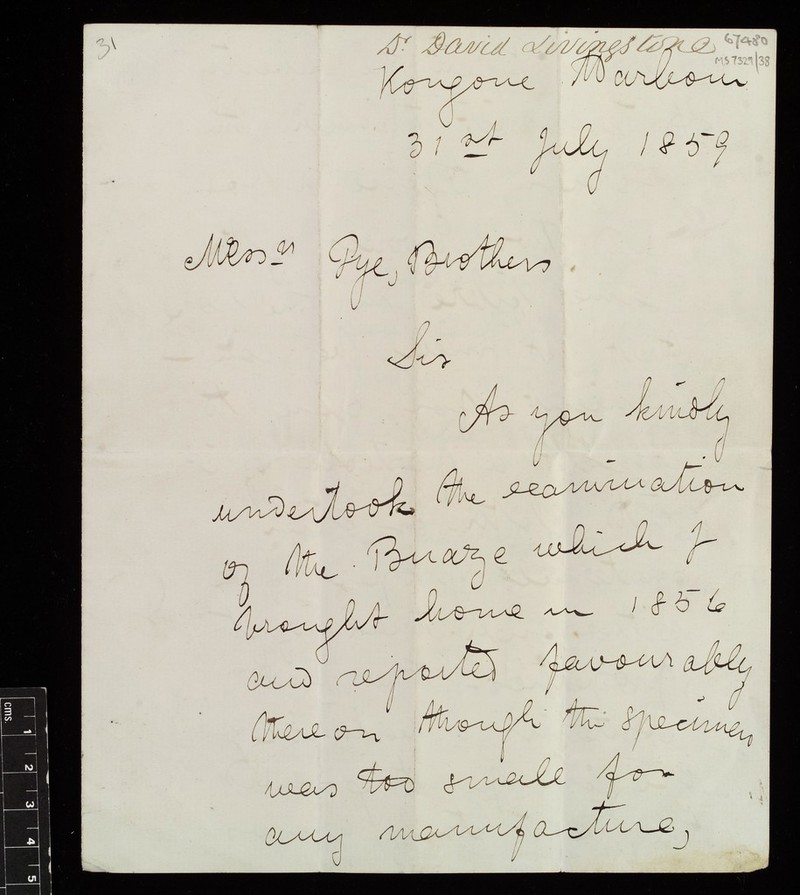 31
Dr David Livingstone
67480
MS 7329/38
Kongone Harbour
31st July 1859
Messrs Pye, Brothers
Sir
As you kindly
undertook the examination
of the Buaze which I
brought home in 1856
and reported favourably
thereon though the specimen
was too small for
any manufacture,
cms.
1
2
3
4
5